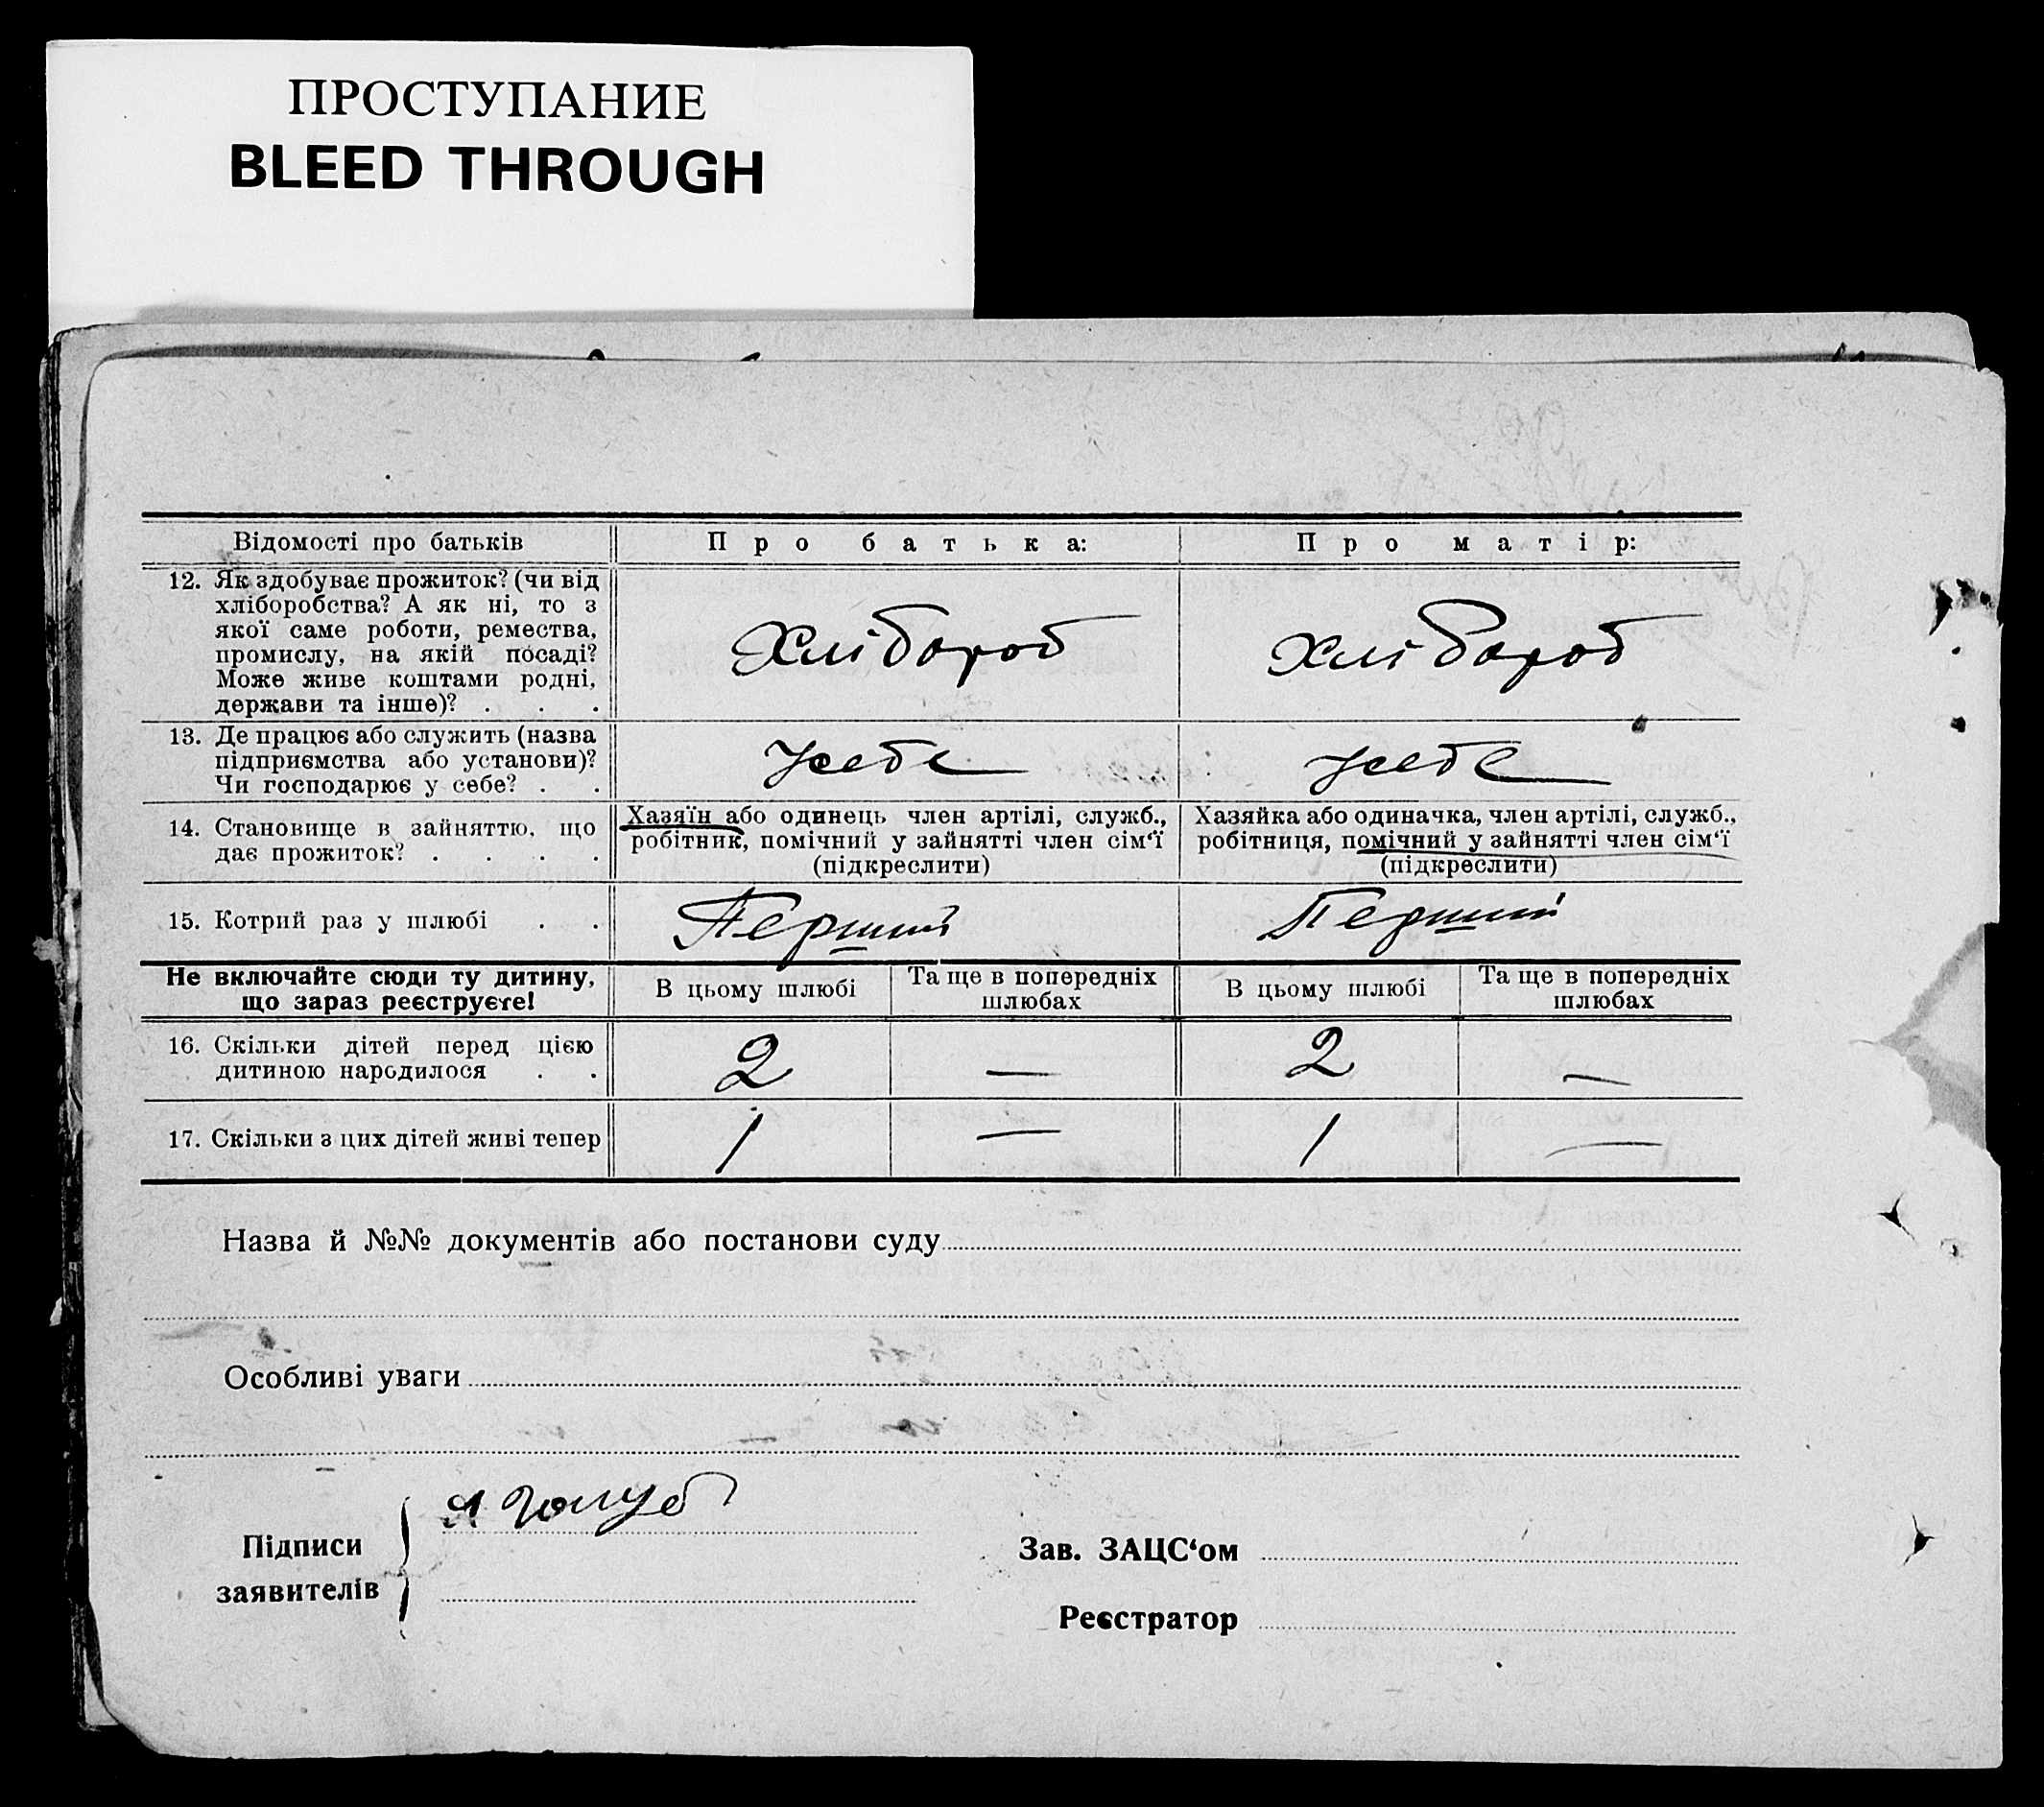 ПРОСТУПАНИЕ
BLEED THROUGH
Відомості про батьків
Про батька:
Про матір:
12. Як здобуває прожиток? (чи від
хліборобства? А як ні, то з
якої саме роботи, ремества,
промислу, на якій посаді?
Може живе коштами родні,
держави та інше)? . . .
Хлібороб
Хлібороб
13. Де працює або служить (назва
підприємства або установи)?
Чи господарює у себе? . .
Усебе
Усебе
14. Становище в зайняттю, що
дає прожиток? . . . .
Хазяїн або одинець член артілі, служб.,
робітник, помічний у зайнятті член сім‘ї
(підкреслити)
Хазяйка або одиначка, член артілі, служб.,
робітниця, помічний у зайнятті член сім‘ї
(підкреслити)
15. Котрий раз у шлюбі . .
Перший
Перший
Не включайте сюди ту дитину,
що зараз реєструєте!
В цьому шлюбі
Та ще в попередніх
шлюбах
В цьому шлюбі
Та ще в попередніх
шлюбах
16. Скільки дітей перед цією
дитиною народилося . .
2
—
2
—
17. Скільки з цих дітей живі тепер
1
—
1
—
Назва й №№ документів або постанови суду
Особливі уваги
Підписи
заявителів
Я Голуб
Зав. ЗАЦС‘ом
Реєстратор